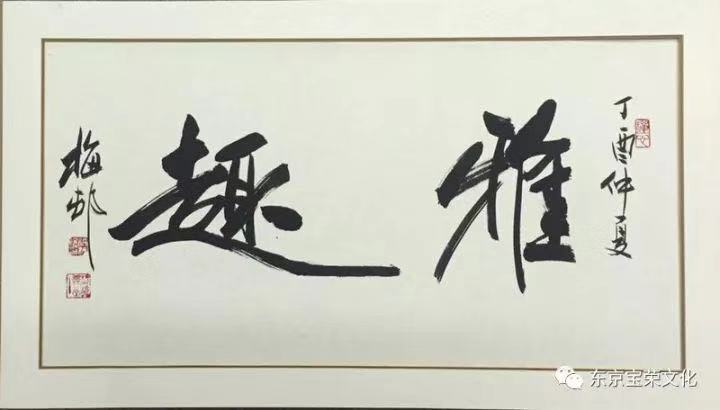 丁酉仲夏
雅趣
梅邨
东京宝荣文化